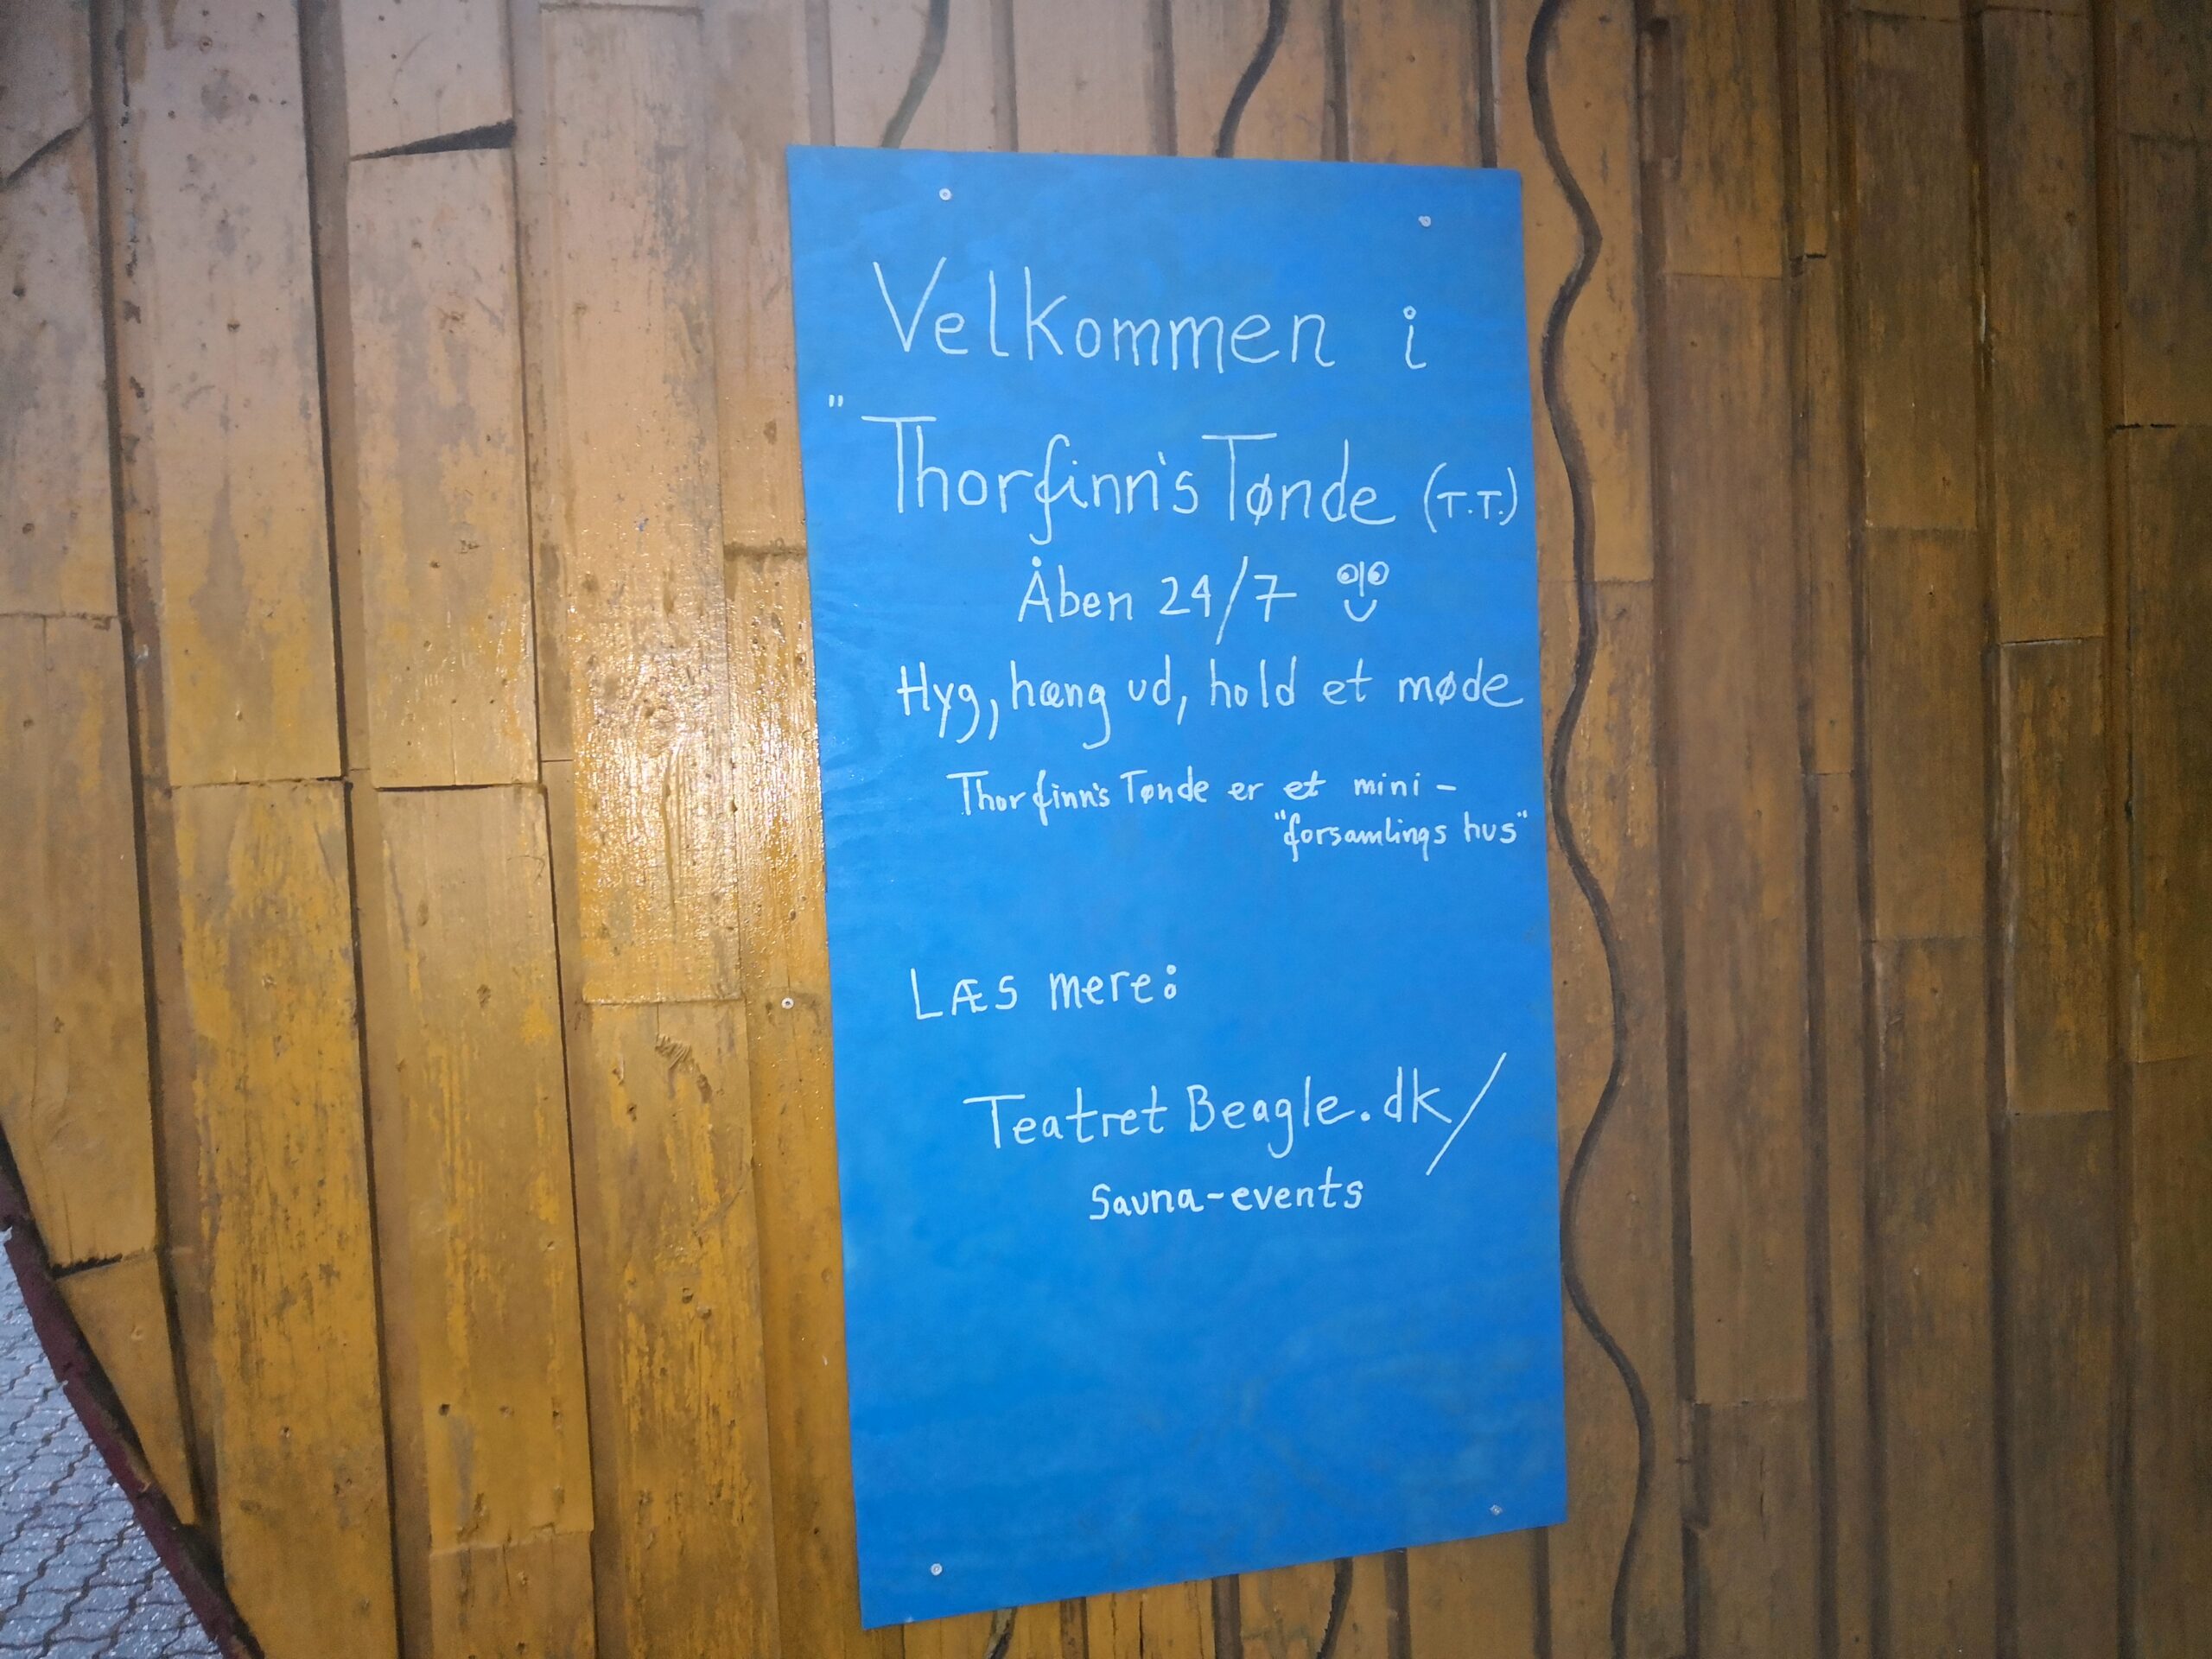 Velkommen i
"Thorfinn's Tønde (T.T.)
Åben 24/7
Hyg, hæng ud, hold et møde
Thorfinn's Tønde er et mini-
"forsamlings hus"
LÆS mere:
Teatret Beagle.dk/
Sauna-events